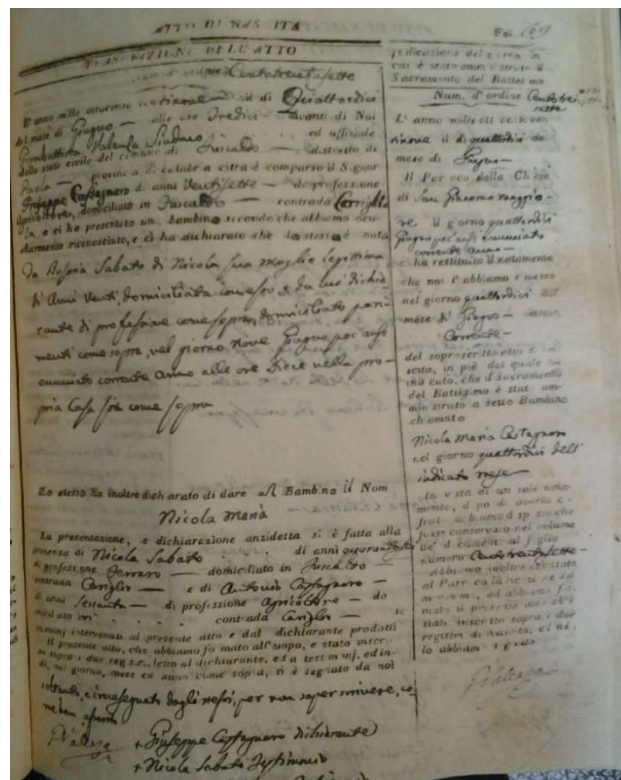 ATTO DI NASCITA
Fol. 169
TRASCRIZIONE DELL'ATTO
Centotrentasette
L'anno mille ottocento ventinove il dì Quattordici
del mese di Giugno alle ore Tredici avanti di Noi
Giambattista Valenza Sindaco ed uffiziale
dello stato civile del comune di Fuscaldo distretto di
Paola provincia di Calabria citra è comparso il Signor
Giuseppe Castagnaro di anni Ventisette di professione
Agricoltore, domiciliato in Fuscaldo contrada
e ci ha presentato un bambino secondo che abbiamo ocu-
larmente riconosciuto, e ci ha dichiarato che lo stesso è nato
da Rosaria Sabato di Nicola sua moglie legittima
di Anni Venti, domiciliata come sopra, e da lui dichia-
rante di professione come sopra, domiciliato pari-
menti come sopra, nel giorno Nove Giugno
corrente Anno alle ore Dieci nella pro-
pria Casa sita come sopra
Lo stesso ha inoltre dichiarato di dare al Bambino il Nom
Nicola Maria
La presentazione, e dichiarazione anzidetta si è fatta alla
presenza di Nicola Sabato di anni
di professione Ferraro domiciliato in Fuscaldo
contrada e di Antonio Castagnaro
di anni Sessanta di professione Agricoltore do
miciliato ivi contrada te
stimonj intervenuti al presente atto e dal dichiarante prodotti
Il presente atto, che abbiamo formato all'uopo, è stato inscri-
to sopra i due registri, letto al dichiarante, ed a testimonj, ed in-
di, nel giorno, mese ed anno come sopra, si è segnato da noi
e crocesegnato dagli stessi, per non saper scrivere, co-
me han
+ Giuseppe Castagnaro dichiarante
+ Nicola Sabato Testimonio
indicazione del giorno in
cui è stato amministrato il
Sacramento del Battesimo
Num. d'ordine
L'anno mille ottocento venti-
nove il dì quattordici del
mese di Giugno
Il Parroco della Chiesa
di San Giacomo maggio-
re il giorno quattordici
Giugno
corrente anno
ci ha restituito il notamento
che noi l'abbiamo rimesso
nel giorno quattordici del
mese di Giugno
Corrente
del soprascritto atto di na-
scita, in piè del quale ha
indicato, che il Sacramento
del Battesimo è stato am-
ministrato a detto Bambino
chiamato
Nicola Maria Castagnaro
nel giorno quattordici dell'
indicato mese
In vista di un tale nota-
mento, dopo di averlo ci-
frato, abbiamo disposto che
fosse conservato nel volume
de' documenti al foglio
numero Centotrentasette
Abbiamo inoltre accusato
al Parroco la ricezione del
medesimo, ed abbiamo for-
mato il presente atto che è
stato inscritto sopra i due
registri di Nascita, ed indi
lo abbiam segnato